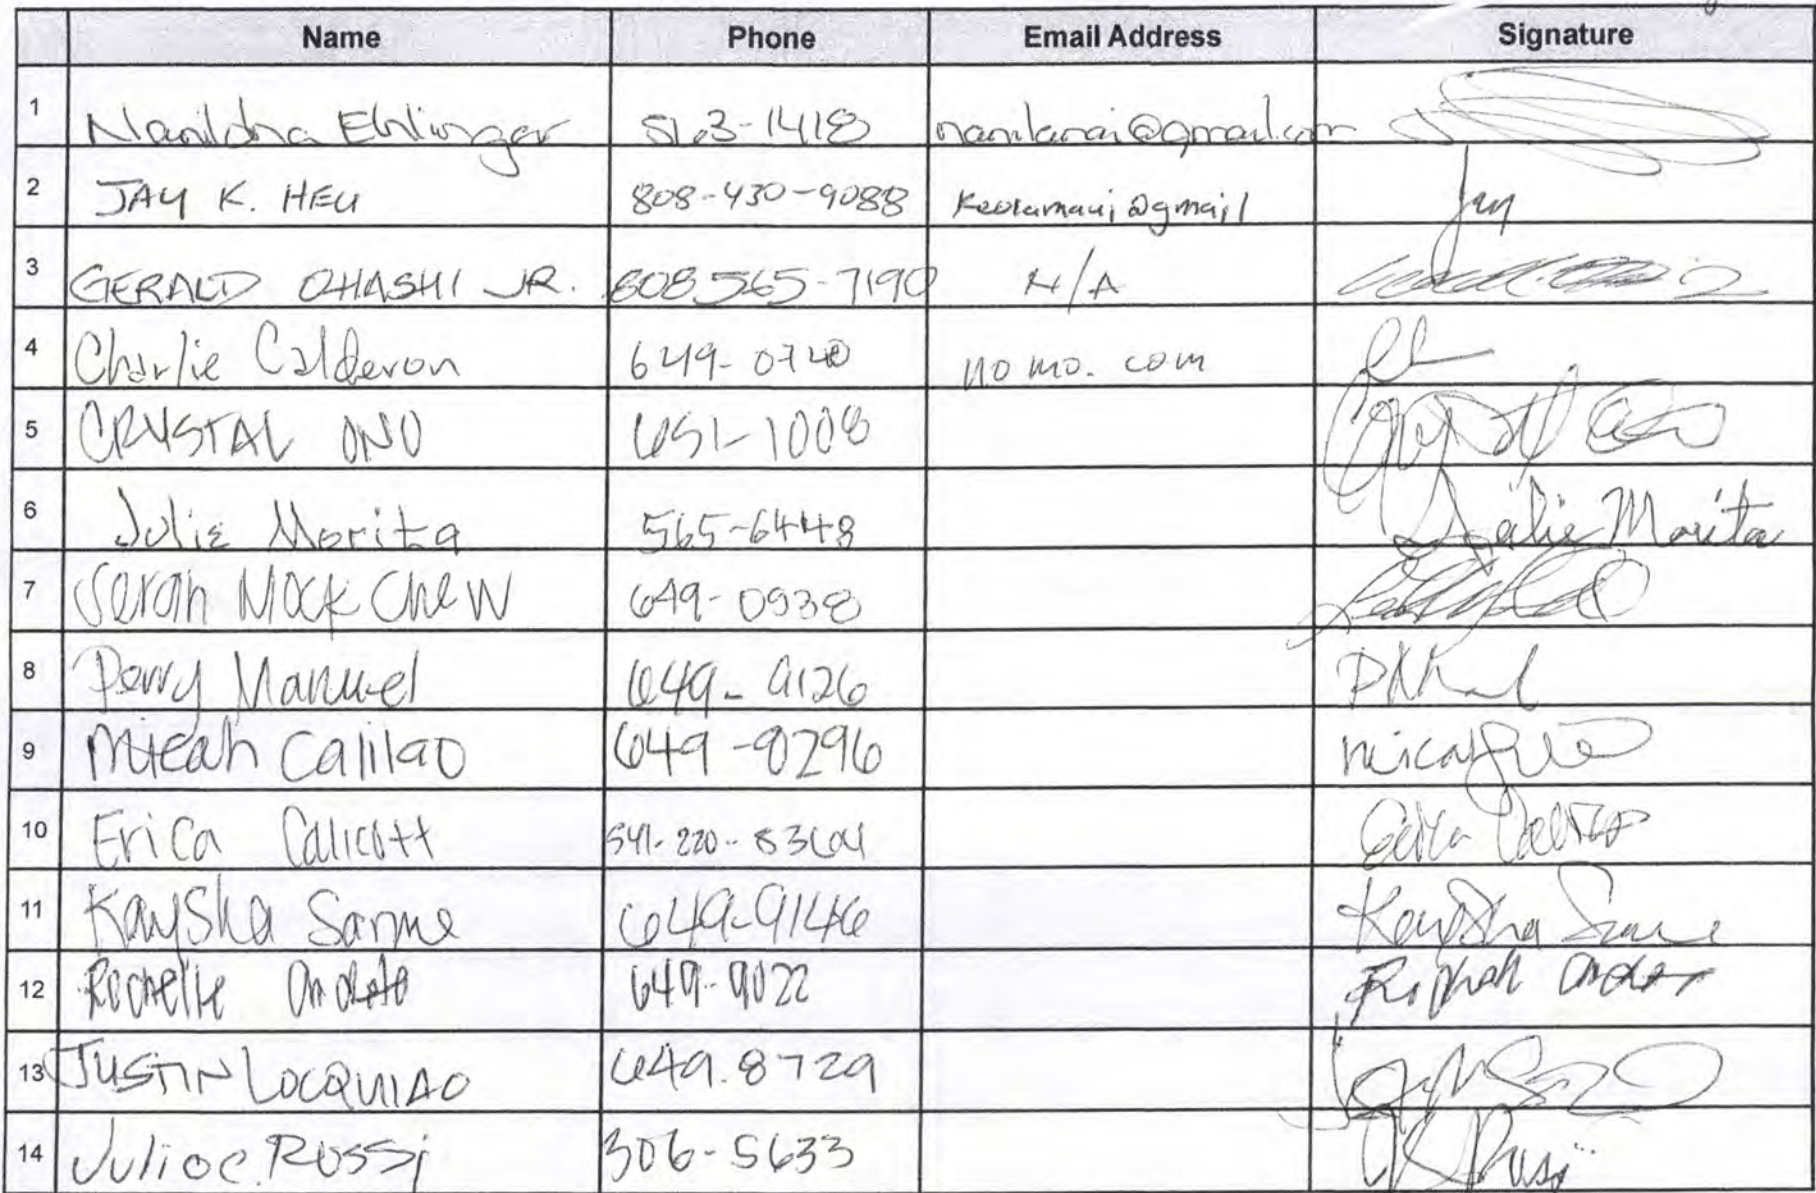 Name Phone Email Address Signature
1 Ehlinger 563-1418
2 JAY K. HEU 808-430-9088 Keolamaui@gmail Jay
3 GERALD OHASHI JR. 808 565-7190 N/A
4 Charlie Calderon 649-0740 no mo. com
5 CRYSTAL ONO 651-1008
6 Julie Morita 565-6448 Julie Morita
7 Serah Mock Chew 649-0938
8 Perry Manuel 649-9126
9 Micah Calilao 649-9296
10 Erica Calicott 541-220-8364
11 Kaysha Sarme 649-9146 Kaysha Sarme
12 Rochelle 649-9022
13 JUSTIN LOCQUIAO 649.8729
14 Julio C. Rossi 306-5633